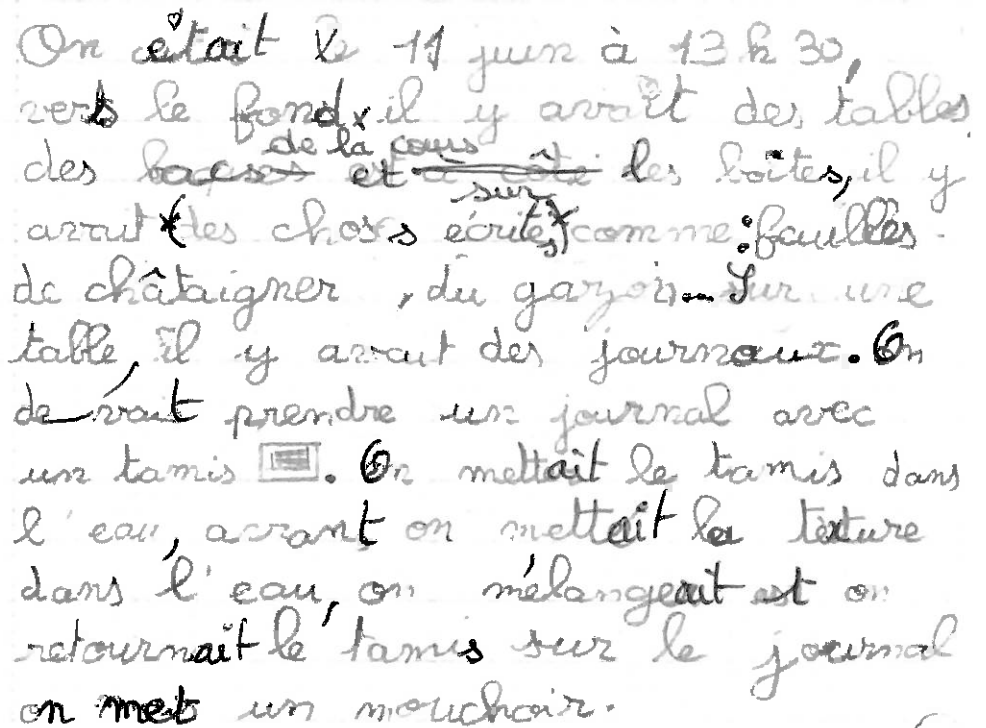 On était le 11 juin à 13 h 30,
vers le fond il y avait des tables
de la cours
des bacs et à côté les boîtes, il y
sur
avait (des choses écrites) comme : feuilles
de châtaigner, du gazon... Sur une
table, il y avait des journaux. On
devait prendre un journal avec
un tamis . On mettait le tamis dans
l'eau, avant on mettait la texture
dans l'eau, on mélangeait et on
retournait le tamis sur le journal
on met un mouchoir.